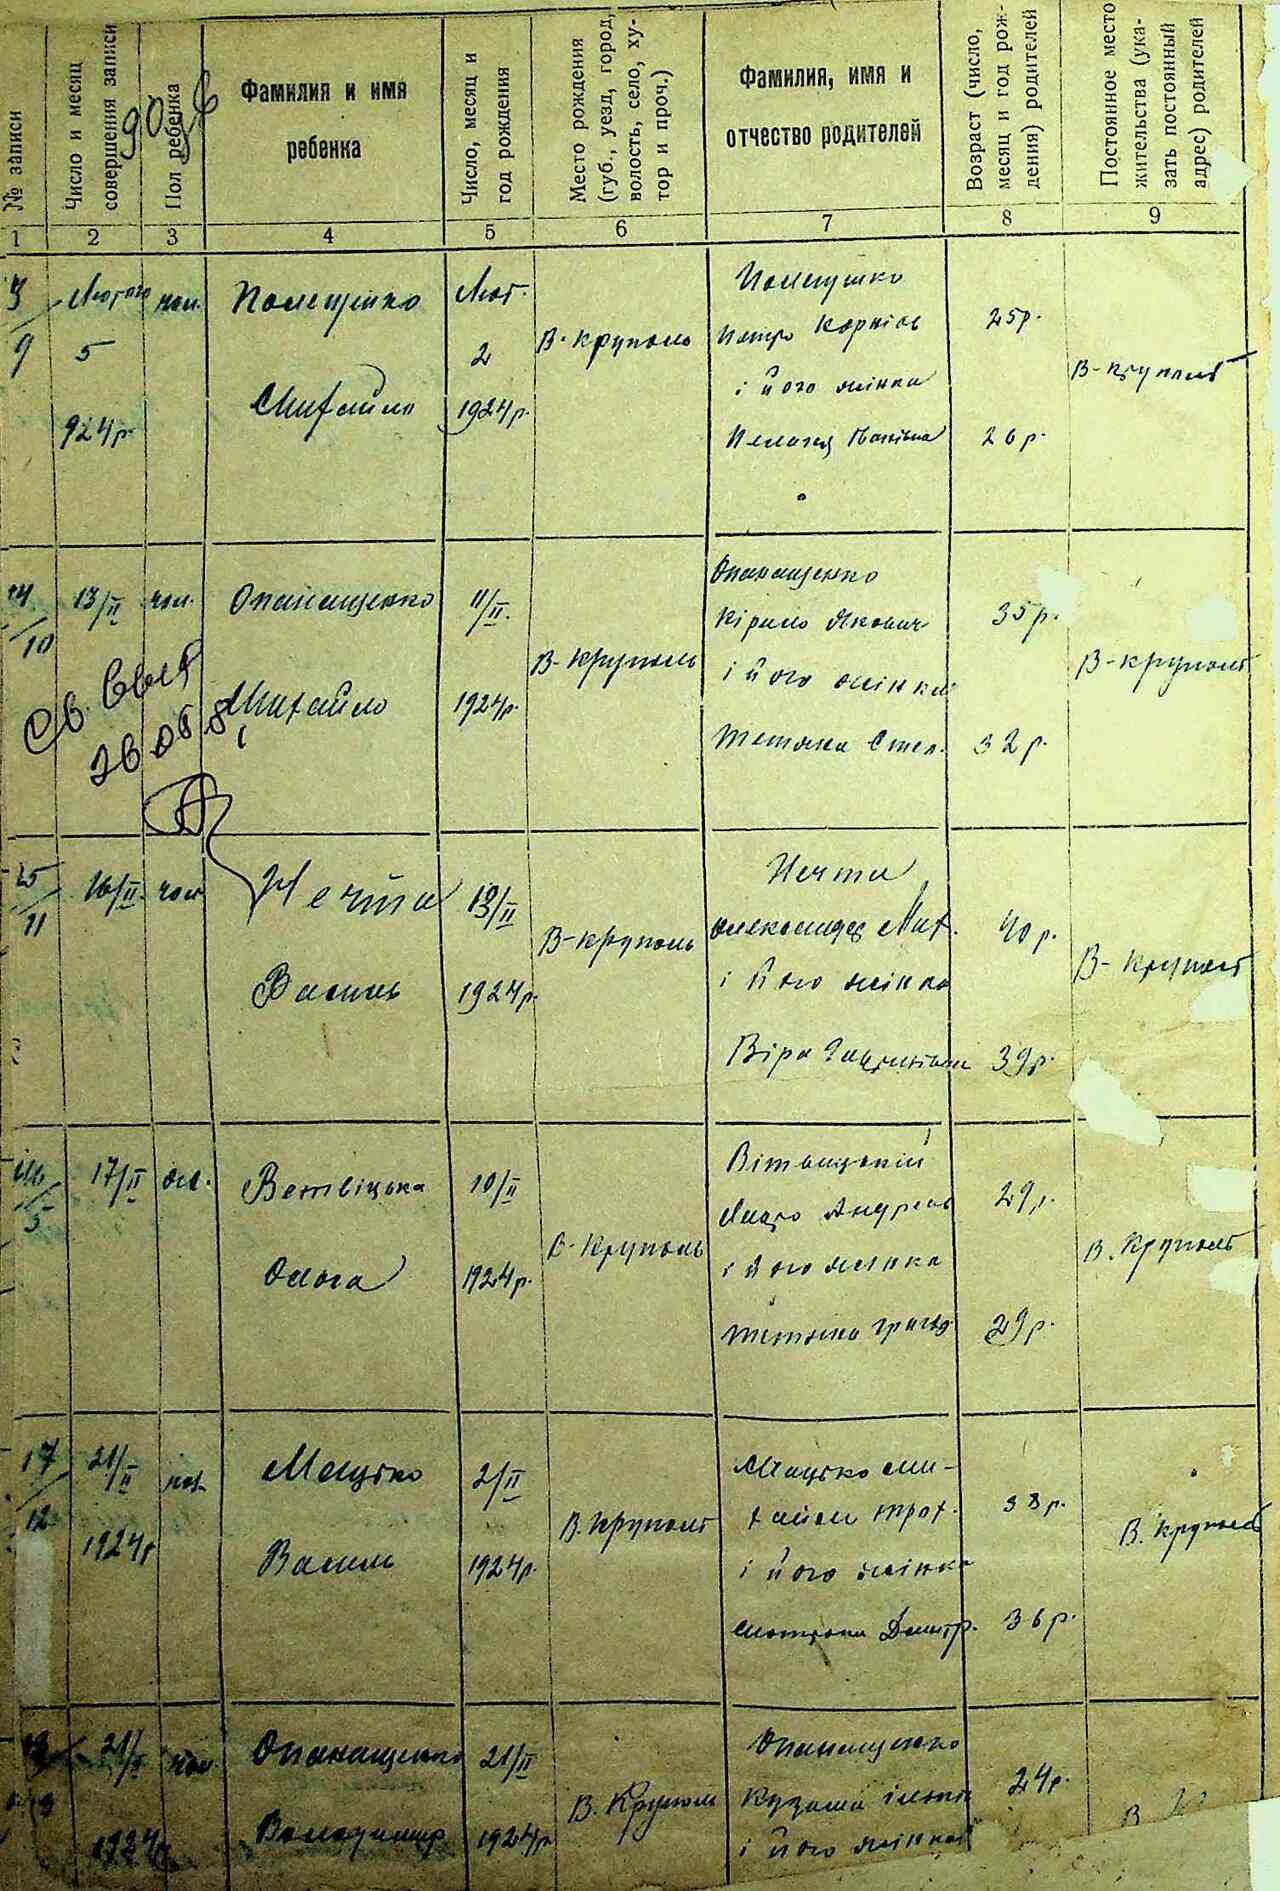 № записи
Число и месяц
совершения записи
Пол ребенка
Фамилия и имя
ребенка
Число, месяц и
год рождения
Место рождения
(губ., уезд, город,
волость, село, ху-
тор и проч.)
Фамилия, имя и
отчество родителей
Возраст (число,
месяц и год рож-
дения) родителей
Постоянное место
жительства (ука-
зать постоянный
адрес) родителей
1 2 3 4 5 6 7 8 9
Лютого
5
924 р.
чол.
Михайло
Лют.
2
1924 р.
В-Круполь
Петро Корнієв
і його жінка
Пелагея
25 р.
26 р.
В-Круполь
10
13/II
чол.
Опанащенко
Михайло
11/II.
1924 р.
В-Круполь
Опанащенко
Кірило Якович
і його жінка
Тетяна Степ.
35 р.
32 р.
В-Круполь
11
16/II
чол
Василь
13/II
1924 р.
В-Круполь
Олександр Мих.
і його жінка
Віра
40 р.
39 р.
В-Круполь
5
17/II
жі.
Ветвіцька
Ольга
10/II
1924 р.
В-Круполь
Вітвицький
і його жінка
Тетяна
29 р.
29 р.
В. Круполь
17
12
21/II
1924 р
чол.
Мацько
Василь
2/II
1924 р.
В. Круполь
Мацько Ми-
хайло Трох.
і його жінка
Мотрона Дмитр.
38 р.
36 р.
В. Круполь
21/II
1924 р
чол.
Опанащенко
Володимир
21/II
1924 р.
В. Круполь
Опанащенко
Кузьма
і його жінка
24 р.
В. К